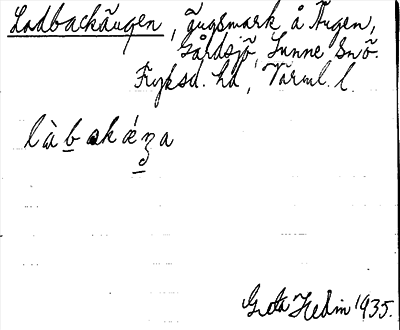 Ladbackäugen, äugsmark å Äugen,
Gårdsjö, Sunne snö.
Fryksd. hd, Värml. l.
làbakǽʒa
Greta Hedin 1935.